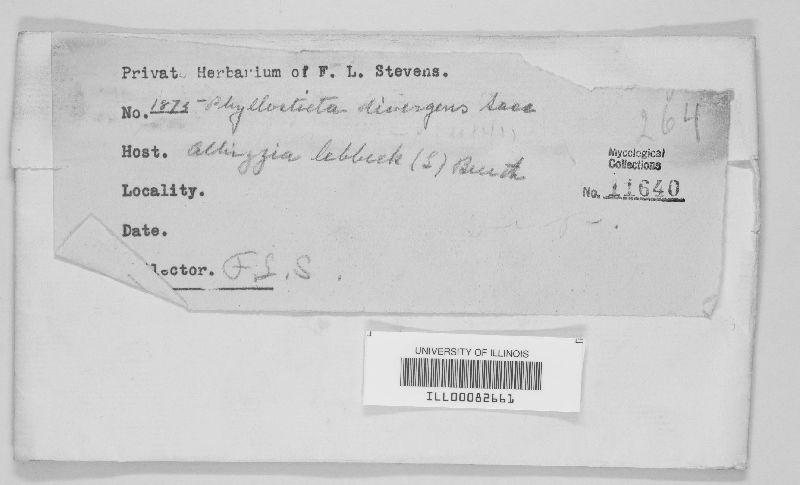 Private Herbarium of F. L. Stevens.
No. 1873 - Phyllosticta divergens Sacc
264
Host. Albizzia lebbeck (L) Benth
Mycological
Collections
Locality.
No. 11640
Date.
llector. F. L. S.
UNIVERSITY OF ILLINOIS
ILL00082661